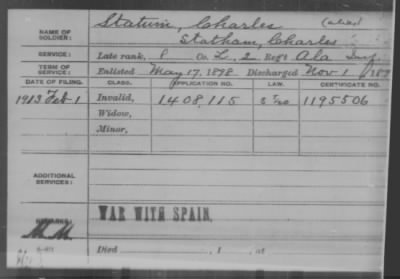 Statum, Charles (alias)
NAME OF SOLDIER: Statham, Charles
SERVICE: Late rank, P Co. L, 2 Reg't Ala Inf.
TERM OF SERVICE: Enlisted May 17, 1898 Discharged Nov 1, 189
DATE OF FILING. CLASS. APPLICATION NO. LAW. CERTIFICATE NO.
1913 Feb 1 Invalid, 1408,115 1195506
Widow,
Minor,
ADDITIONAL SERVICES:
REMARKS: WAR WITH SPAIN.
M.M.
Died , 1 , at